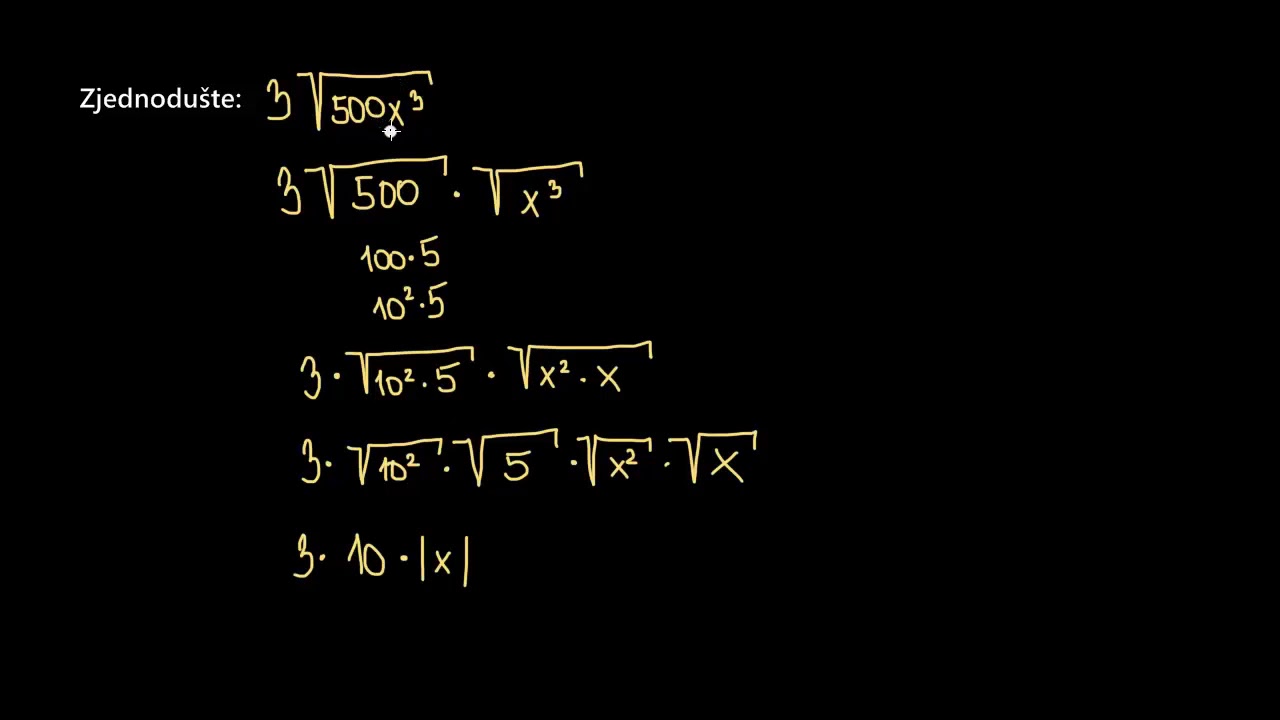 Zjednodušte: 3√(500x³)
3√500 · √(x³)
100·5
10²·5
3 · √(10²·5) · √(x²·x)
3 · √(10²) · √5 · √(x²) · √x
3 · 10 · |x|